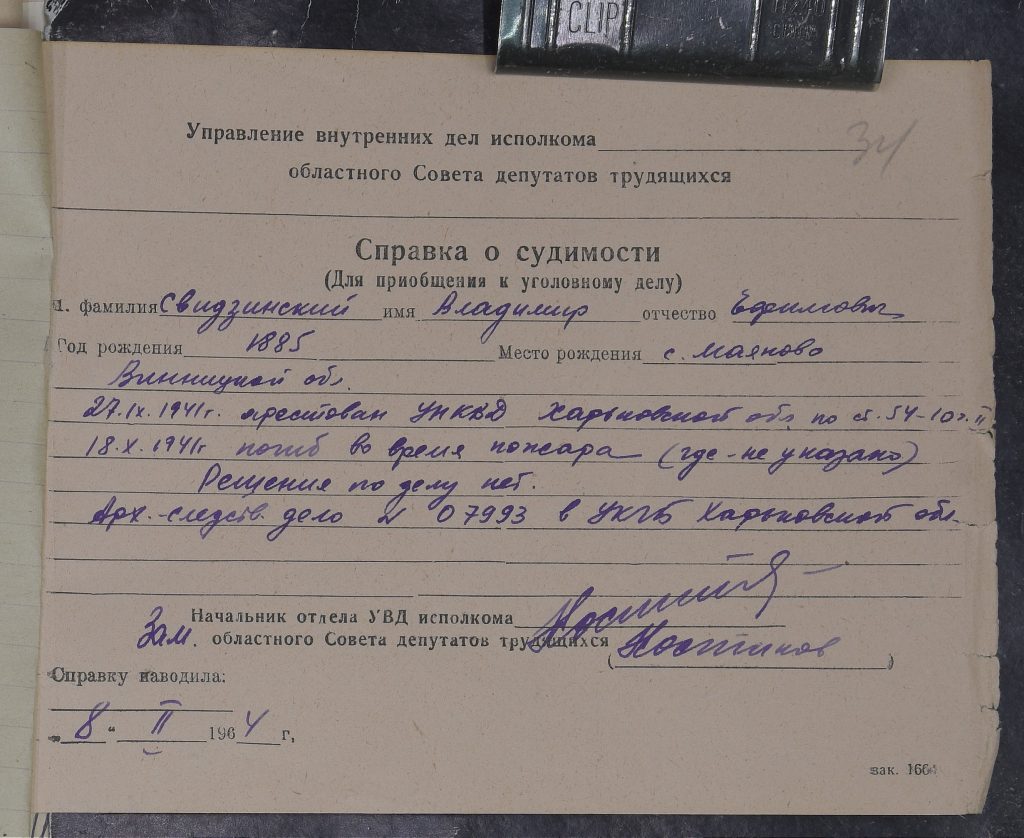 CLIP
34
Управление внутренних дел исполкома
областного Совета депутатов трудящихся
Справка о судимости
(Для приобщения к уголовному делу)
1. фамилия Свидзинский имя Владимир отчество Ефимович
Год рождения 1885 Место рождения с. Маяново
Винницкой обл.
27.IX.1941г. арестован УНКВД Харьковской обл. по ст. 54-10 ч. II
18.X.1941г погиб во время пожара (где-не указано)
Решения по делу нет.
Арх.-следств. дело № 07993 в УКГБ Харьковской обл.
Начальник отдела УВД исполкома
Зам. областного Совета депутатов трудящихся
(Костиков)
Справку наводила:
„8" II 1964 г,
зак. 1664